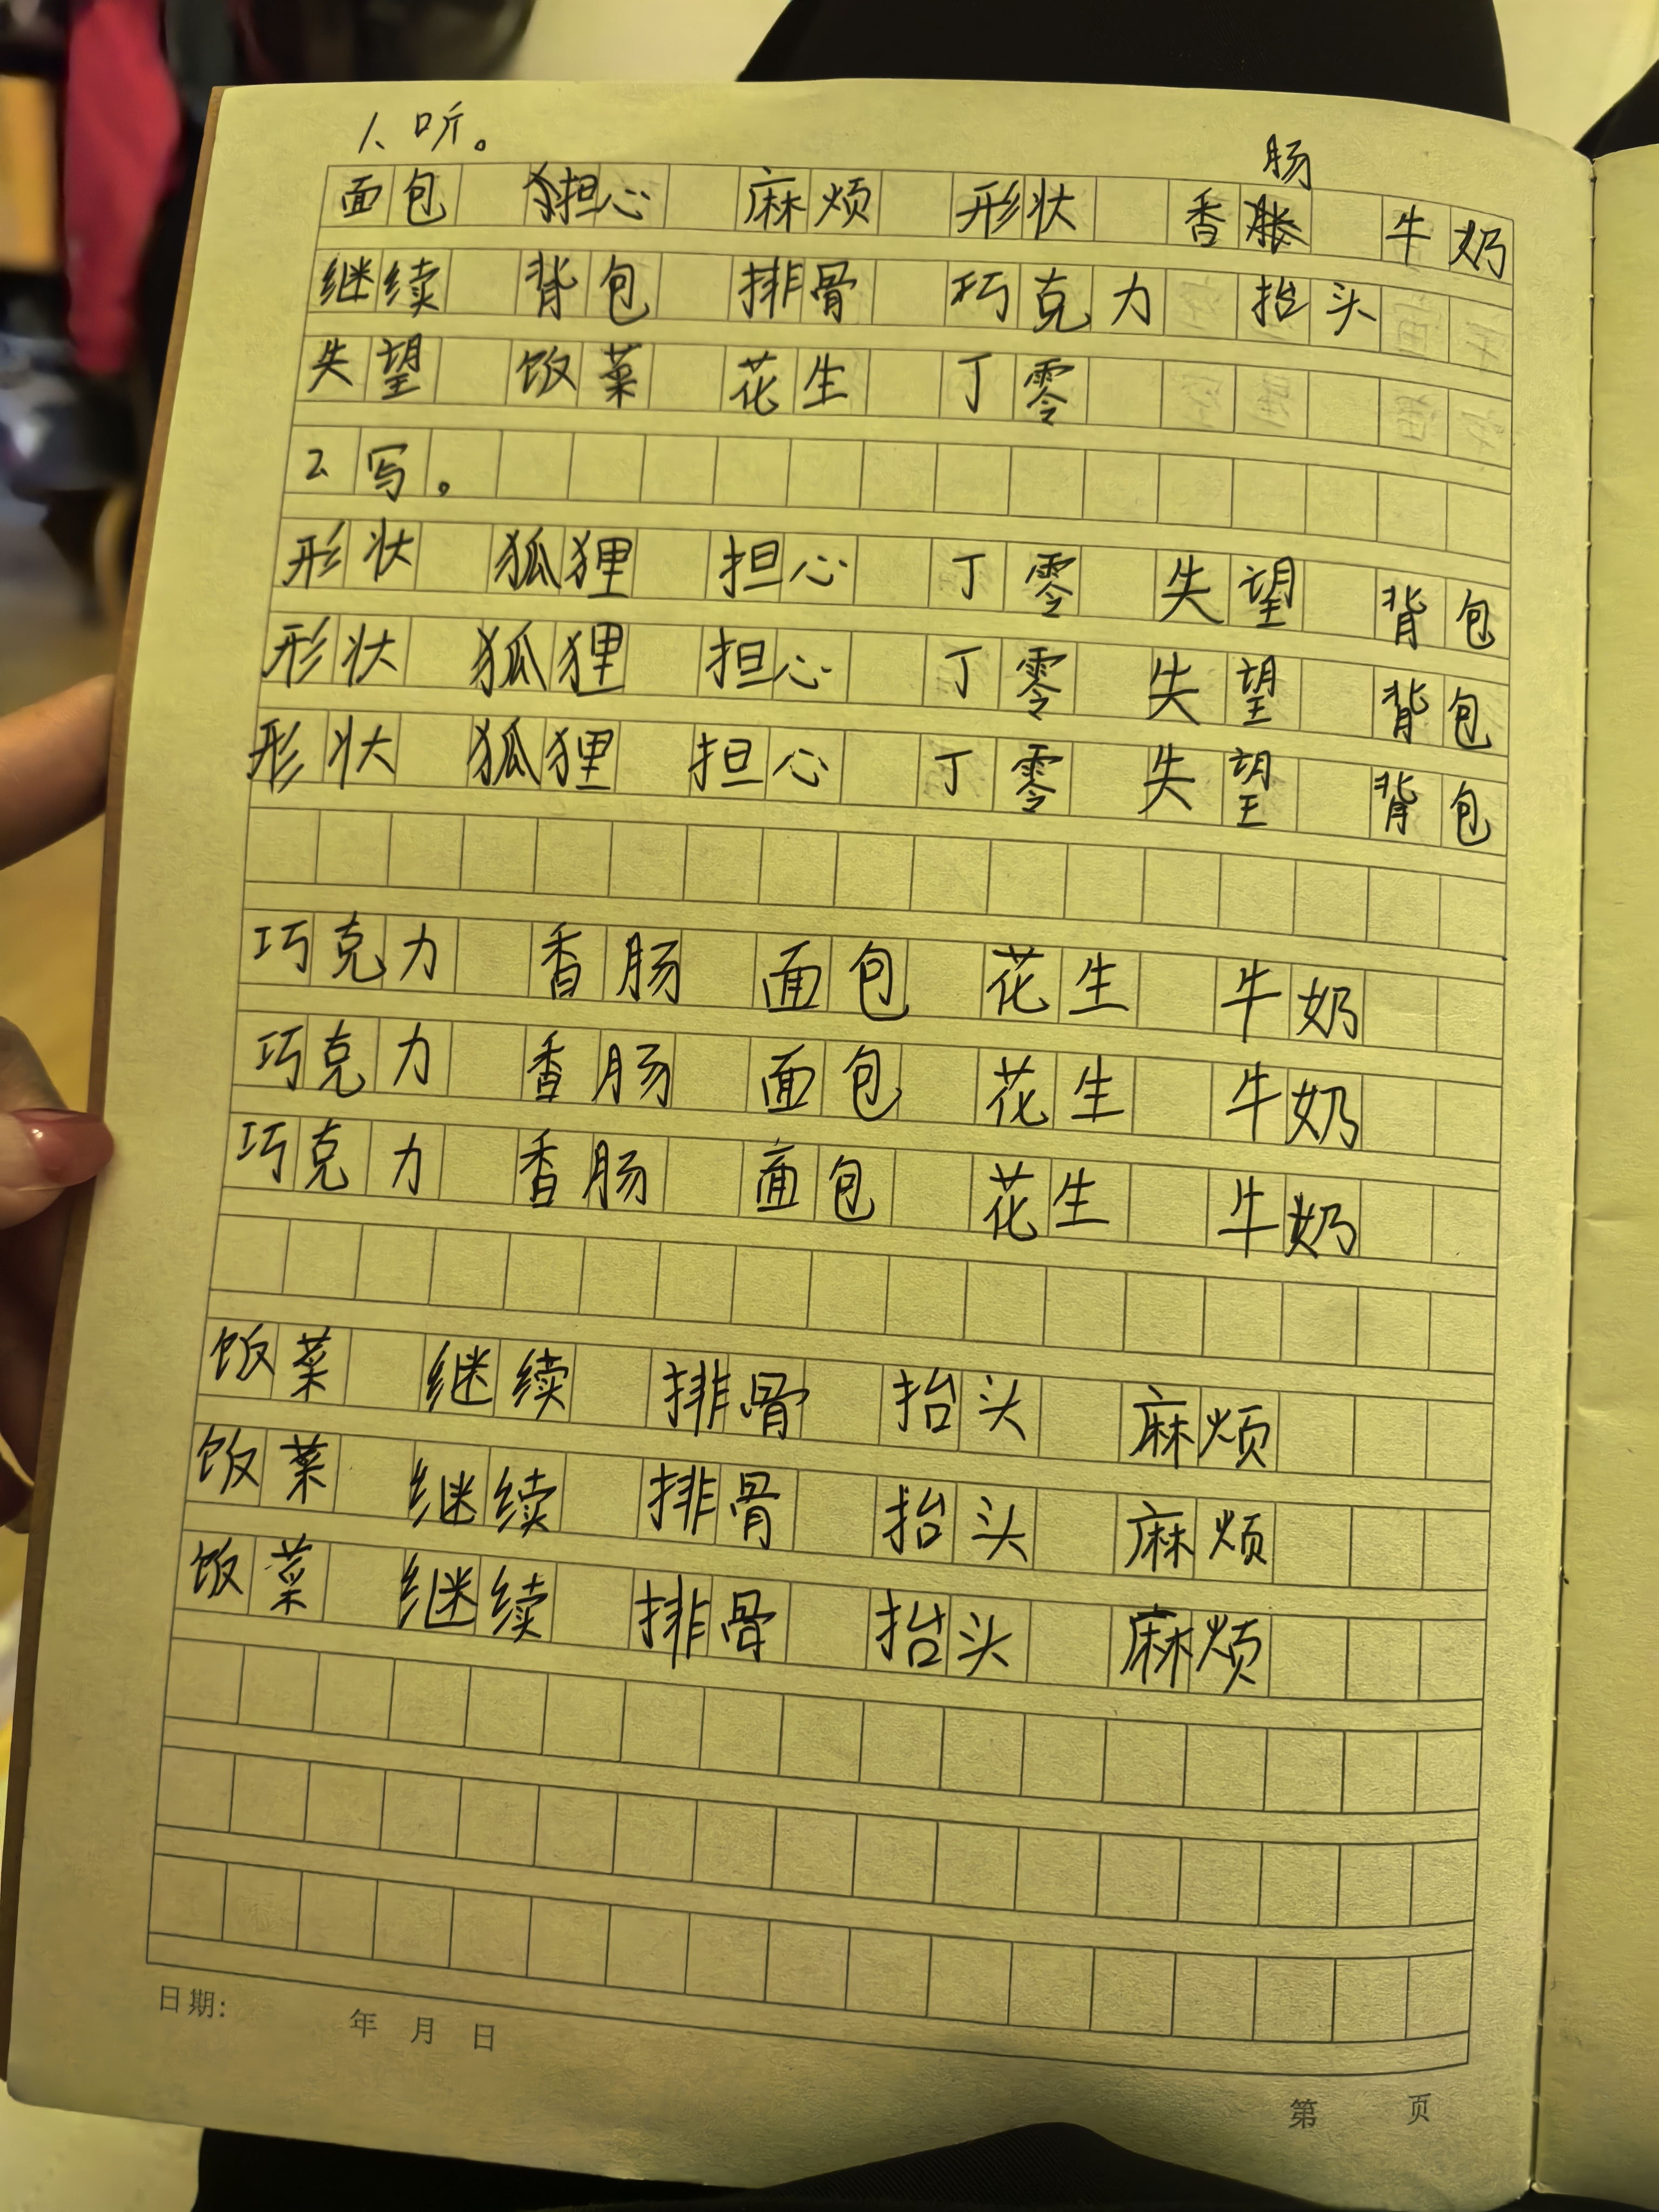 1、听。
肠
面包 担心 麻烦 形状 香 牛奶
继续 背包 排骨 巧克力 抬头
失望 饭菜 花生 丁零
2 写。
形状 狐狸 担心 丁零 失望 背包
形状 狐狸 担心 丁零 失望 背包
形状 狐狸 担心 丁零 失望 背包
巧克力 香肠 面包 花生 牛奶
巧克力 香肠 面包 花生 牛奶
巧克力 香肠 面包 花生 牛奶
饭菜 继续 排骨 抬头 麻烦
饭菜 继续 排骨 抬头 麻烦
饭菜 继续 排骨 抬头 麻烦
日期: 年 月 日
第 页